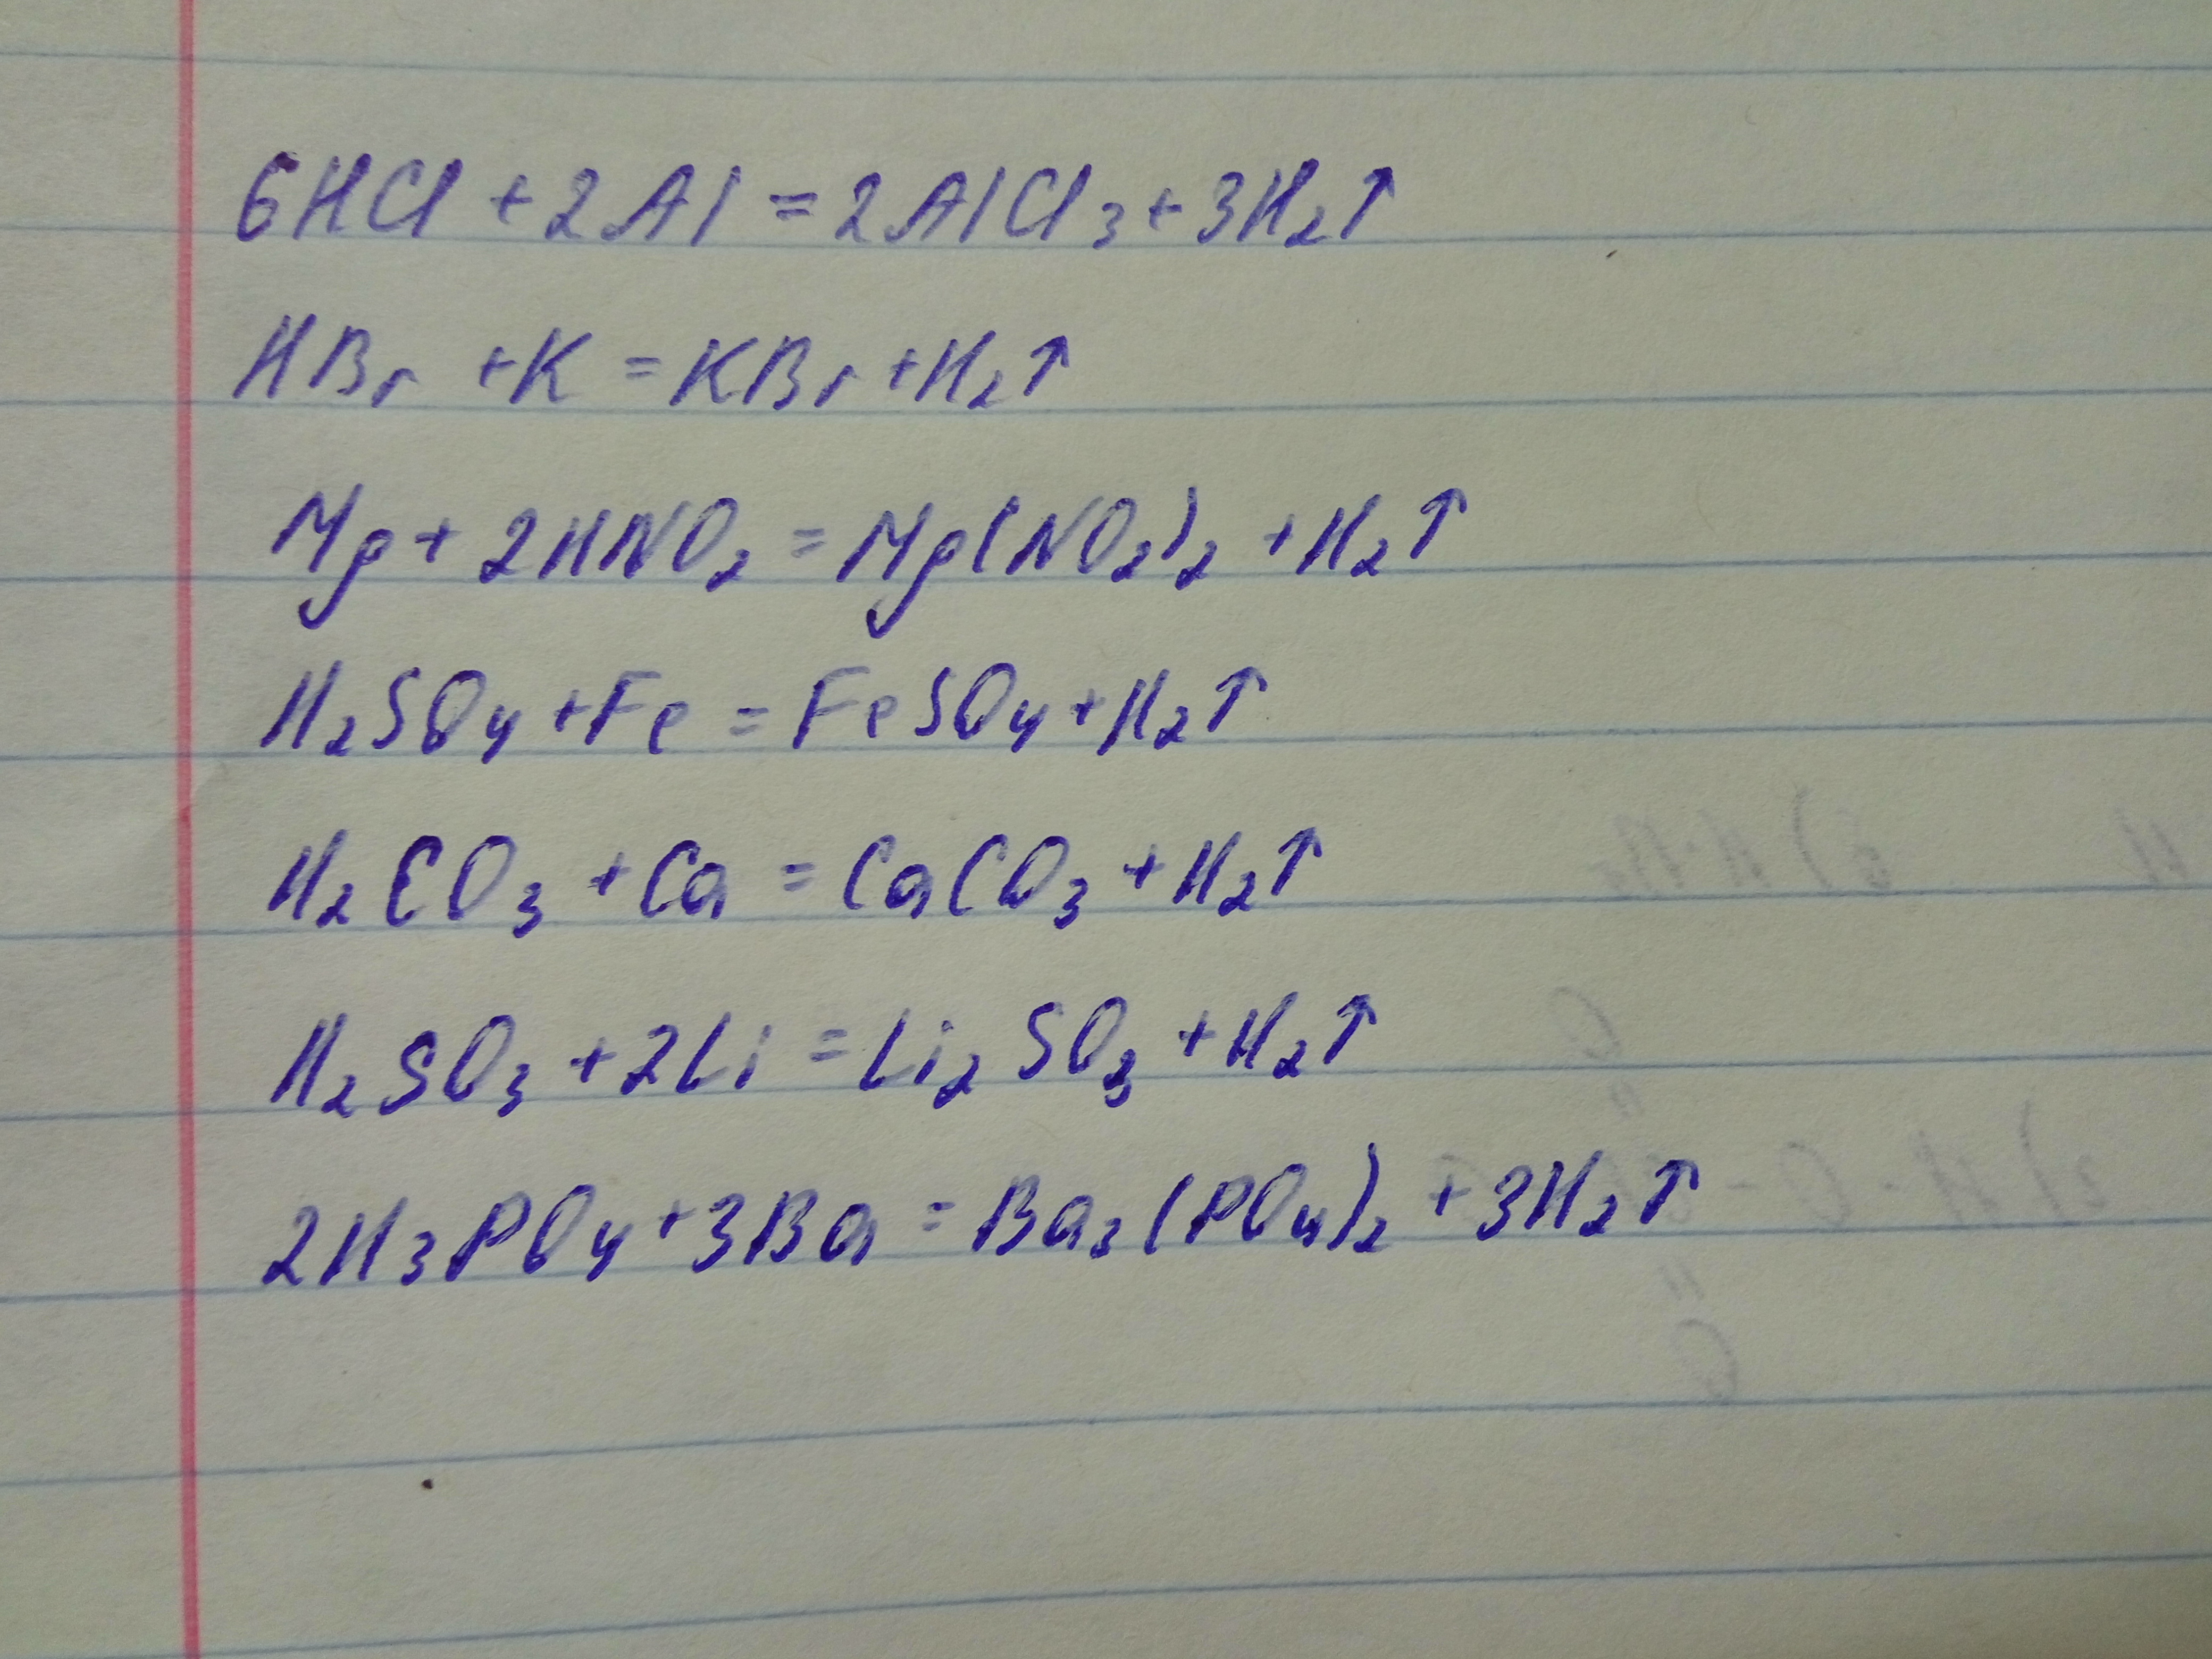 6HCl + 2Al = 2AlCl₃ + 3H₂↑
HBr + K = KBr + H₂↑
Mg + 2HNO₂ = Mg(NO₂)₂ + H₂↑
H₂SO₄ + Fe = FeSO₄ + H₂↑
H₂CO₃ + Ca = CaCO₃ + H₂↑
H₂SO₃ + 2Li = Li₂SO₃ + H₂↑
2H₃PO₄ + 3Ba = Ba₃(PO₄)₂ + 3H₂↑